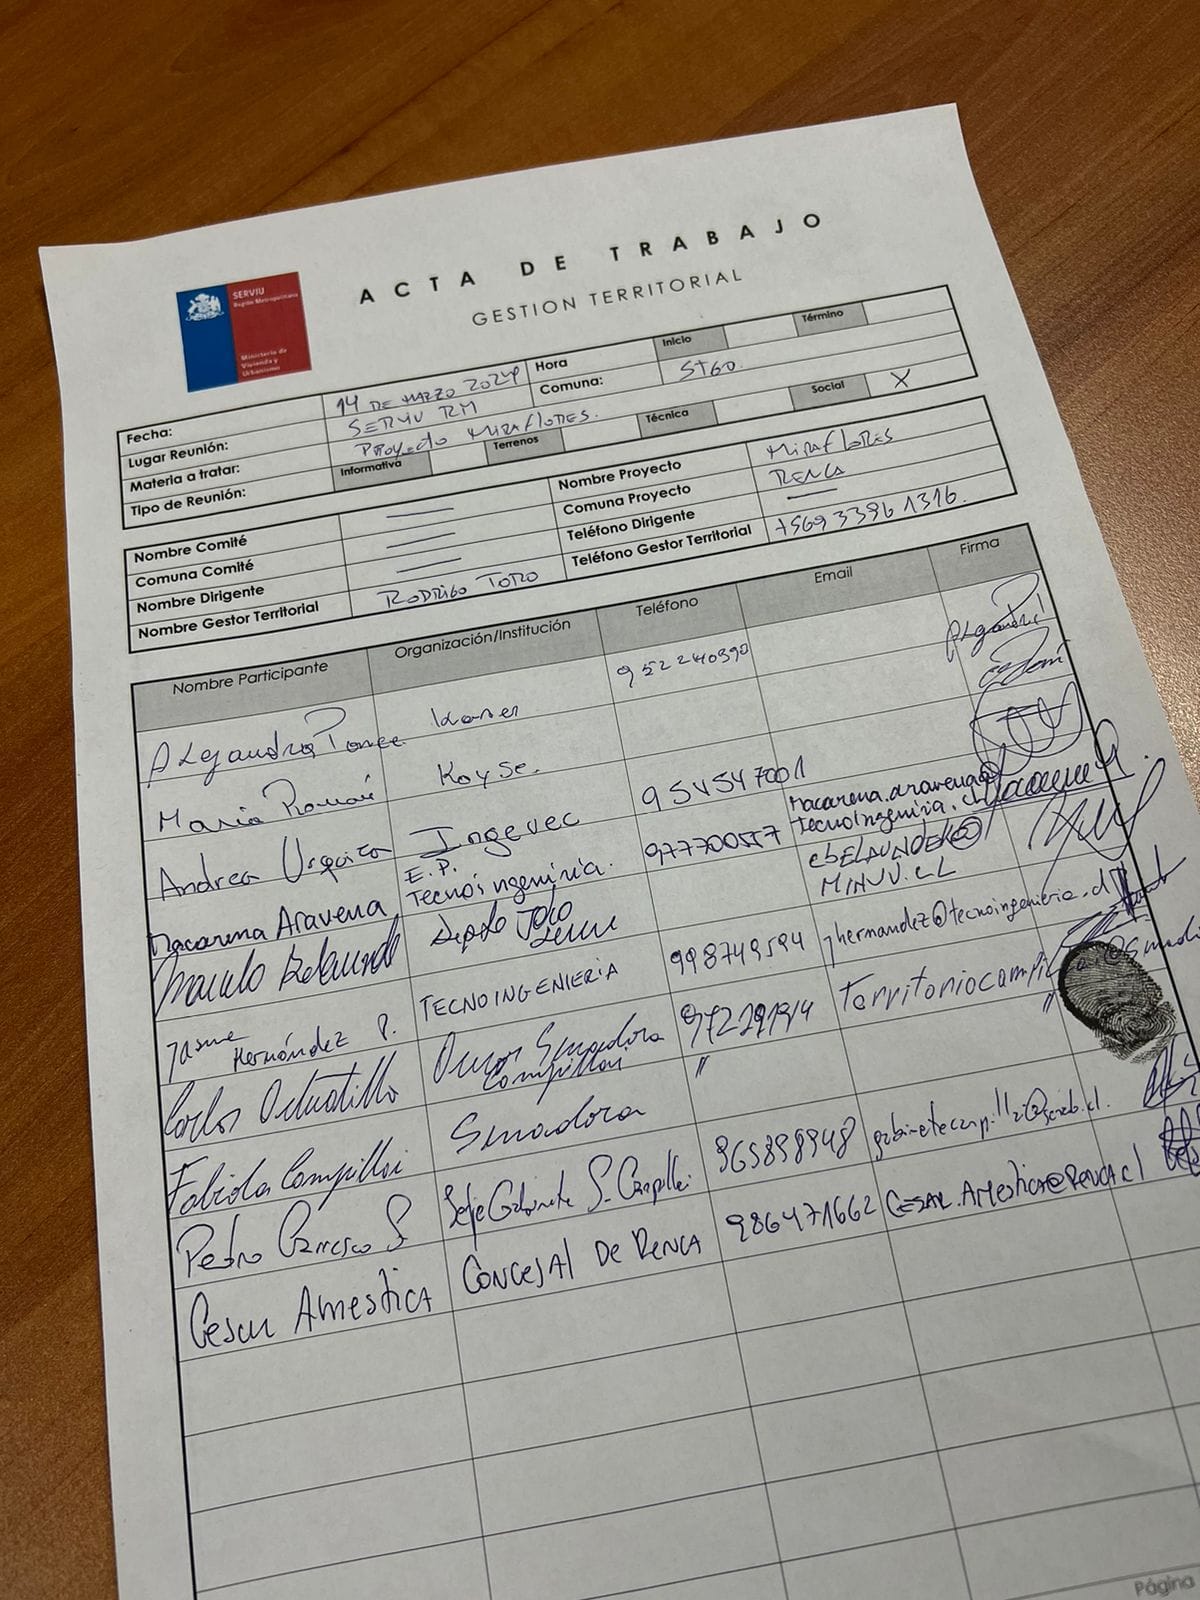 SERVIU
Región Metropolitana
Ministerio de
Vivienda y
Urbanismo
ACTA DE TRABAJO
GESTION TERRITORIAL
Fecha: 14 DE MARZO 2024 Hora Inicio Término
Lugar Reunión: SERVIU RM Comuna: STGO.
Materia a tratar: Proyecto MIRAFLORES.
Tipo de Reunión: Informativa Terrenos Técnica Social X
Nombre Comité Nombre Proyecto MIRAFLORES
Comuna Comité Comuna Proyecto RENCA
Nombre Dirigente Teléfono Dirigente
Nombre Gestor Territorial RODRIGO TORO Teléfono Gestor Territorial +569 3396 1316.
Nombre Participante Organización/Institución Teléfono Email Firma
Alejandra Ponce 952240390
Maria Román Koyse.
Andrea Urquiza Ingevec 954547001
Macarena Aravena E.P. Tecnoingeniria. 977700557 Macarena.aravena@tecnoingenieria.cl
MINVU.CL
Hernández P. TECNOINGENIERIA 998749594 jhernandez@tecnoingenieria.cl
Carlos Senadora Campillai
Fabiola Campillai Senadora "
Pedro Carrasco S Jefe Gabinete S. Campillai 965898948
Cesar Amestica CONCEJAL DE RENCA 986471662 CESAR.AMESTICA@RENCA.cl
Página